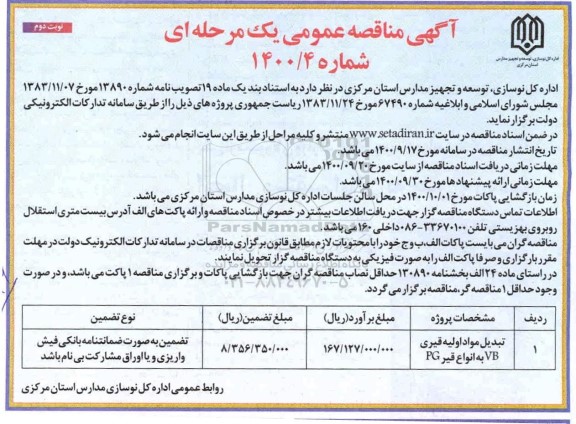 نوبت دوم
آگهی مناقصه عمومی یک مرحله ای
شماره ۱۴۰۰/۴
اداره کل نوسازی، توسعه و تجهیز مدارس
استان مرکزی
اداره کل نوسازی، توسعه و تجهیز مدارس استان مرکزی در نظر دارد به استناد بند یک ماده ۱۹ تصویب نامه شماره ۱۳۸۹۰ مورخ ۱۳۸۳/۱۱/۰۷
مجلس شورای اسلامی و ابلاغیه شماره ۶۷۴۹۰ مورخ ۱۳۸۳/۱۱/۲۴ ریاست جمهوری پروژه های ذیل را از طریق سامانه تدارکات الکترونیکی
دولت برگزار نماید.
در ضمن اسناد مناقصه در سایت www.setadiran.ir منتشر و کلیه مراحل از طریق این سایت انجام می شود.
تاریخ انتشار مناقصه در سامانه مورخ ۱۴۰۰/۹/۱۷ می باشد.
مهلت زمانی دریافت اسناد مناقصه از سایت مورخ ۱۴۰۰/۰۹/۲۰ می باشد.
مهلت زمانی ارائه پیشنهادها مورخ ۱۴۰۰/۰۹/۳۰ می باشد.
زمان بازگشایی پاکات مورخ ۱۴۰۰/۱۰/۰۱ در محل سالن جلسات اداره کل نوسازی مدارس استان مرکزی می باشد.
اطلاعات تماس دستگاه مناقصه گزار جهت دریافت اطلاعات بیشتر در خصوص اسناد مناقصه و ارائه پاکت های الف آدرس بیست متری استقلال
روبروی بهزیستی تلفن ۳۳۶۷۰۱۰۰-۰۸۶ داخلی ۱۶۰ می باشد.
مناقصه گران می بایست پاکات الف، ب و ج خود را با محتویات لازم مطابق قانون برگزاری مناقصات در سامانه تدارکات الکترونیک دولت در مهلت
مقرر بارگزاری و صرفا پاکت الف را به صورت فیزیکی به دستگاه مناقصه گزار تحویل نمایند.
در راستای ماده ۲۴ الف بخشنامه ۱۳۰۸۹۰ حداقل نصاب مناقصه گران جهت بازگشایی پاکات و برگزاری مناقصه ۱ پاکت می باشد، و در صورت
وجود حداقل ۱ مناقصه گر، مناقصه برگزار می گردد.
ردیف مشخصات پروژه مبلغ برآورد (ریال) مبلغ تضمین (ریال) نوع تضمین
۱ تبدیل مواد اولیه قیری VB به انواع قیر PG ۱۶۷/۱۲۷/۰۰۰/۰۰۰ ۸/۳۵۶/۳۵۰/۰۰۰ تضمین به صورت ضمانتنامه بانکی فیش واریزی و یا اوراق مشارکت بی نام باشد
روابط عمومی اداره کل نوسازی مدارس استان مرکزی